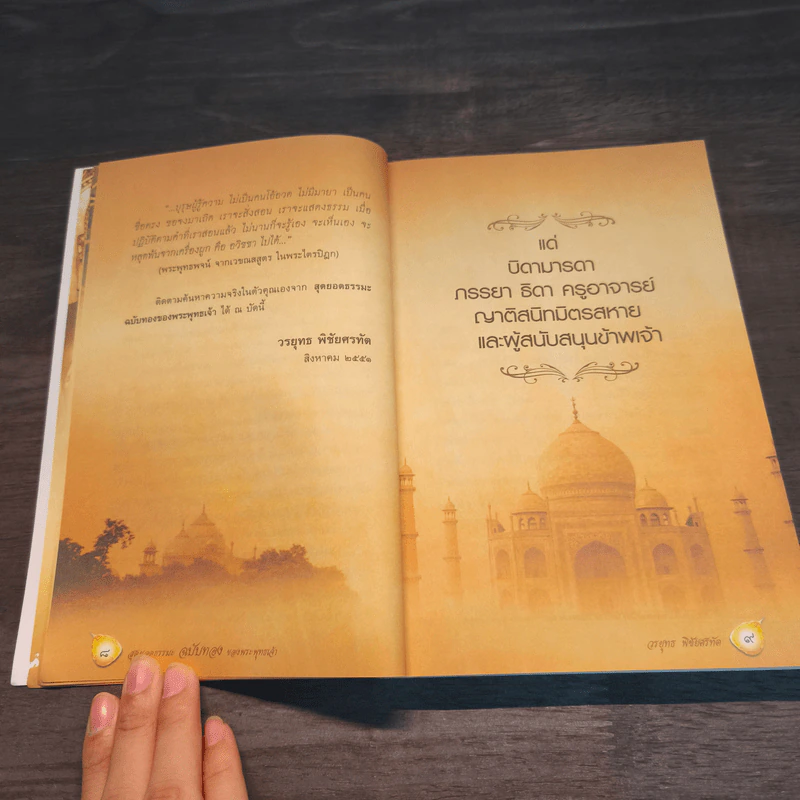 "...บุรุษผู้รู้ความ ไม่เป็นคนโอ้อวด ไม่มีมายา เป็นคน
ซื่อตรง ขอจงมาเถิด เราจะสั่งสอน เราจะแสดงธรรม เมื่อ
ปฏิบัติตามคำที่เราสอนแล้ว ไม่นานก็จะรู้เอง จะเห็นเอง จะ
หลุดพ้นจากเครื่องผูก คือ อวิชชา ไปได้..."
(พระพุทธพจน์ จากเวขณสสูตร ในพระไตรปิฎก)
ติดตามค้นหาความจริงในตัวคุณเองจาก สุดยอดธรรมะ
ฉบับทองของพระพุทธเจ้า ได้ ณ บัดนี้
วรยุทธ พิชัยศรทัต
สิงหาคม ๒๕๕๑
๘
ธรรมะ ฉบับทอง ของพระพุทธเจ้า
แด่
บิดามารดา
ภรรยา ธิดา ครูอาจารย์
ญาติสนิทมิตรสหาย
และผู้สนับสนุนข้าพเจ้า
วรยุทธ พิชัยศรทัต
๙